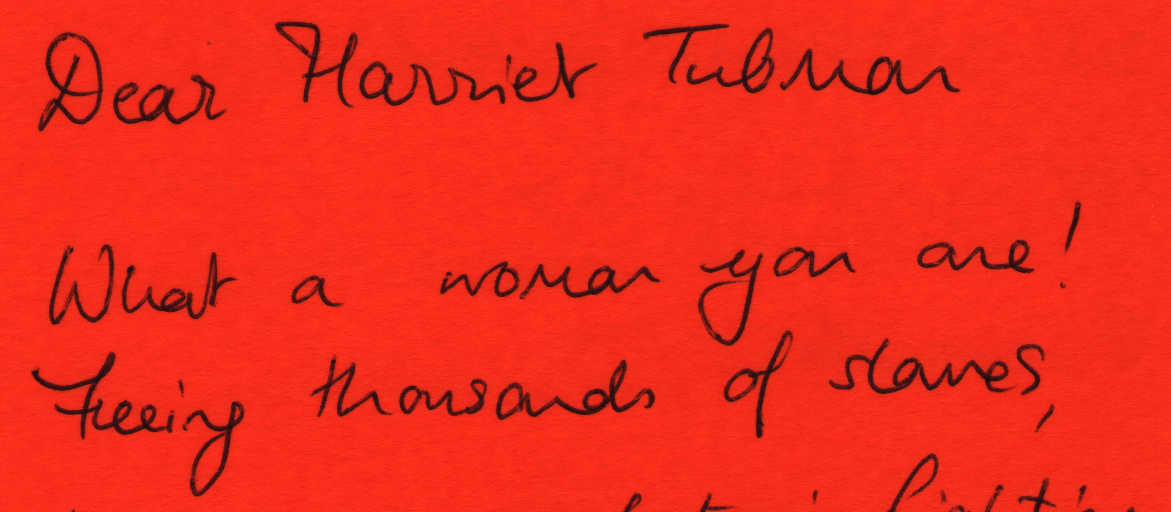 Dear Harriet Tubman
What a woman you are!
Freeing thousands of slaves,
fighting